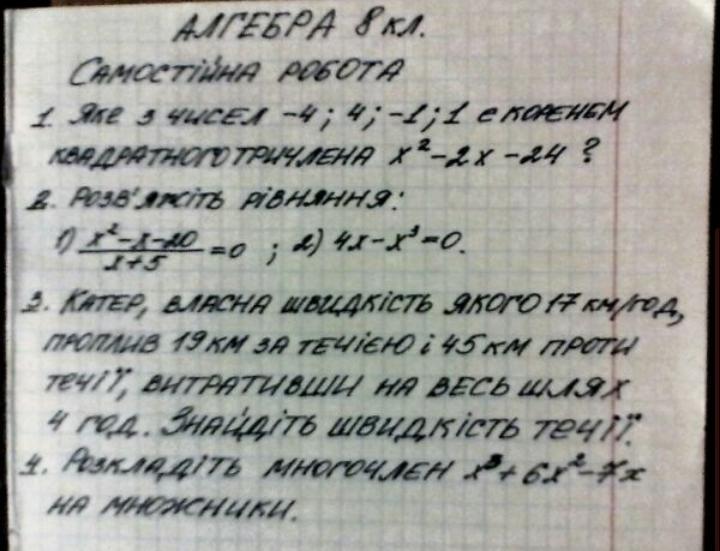 АЛГЕБРА 8 кл.
САМОСТІЙНА РОБОТА
1. ЯКЕ З ЧИСЕЛ -4; 4; -1; 1 Є КОРЕНЕМ
КВАДРАТНОГО ТРИЧЛЕНА x² - 2x - 24 ?
2. РОЗВ'ЯЖІТЬ РІВНЯННЯ:
1) (x² - x - 20)/(x + 5) = 0 ; 2) 4x - x³ = 0.
3. КАТЕР, ВЛАСНА ШВИДКІСТЬ ЯКОГО 17 КМ/ГОД,
ПРОПЛИВ 19 КМ ЗА ТЕЧІЄЮ І 45 КМ ПРОТИ
ТЕЧІЇ, ВИТРАТИВШИ НА ВЕСЬ ШЛЯХ
4 ГОД. ЗНАЙДІТЬ ШВИДКІСТЬ ТЕЧІЇ.
4. РОЗКЛАДІТЬ МНОГОЧЛЕН x³ + 6x² - 7x
НА МНОЖНИКИ.